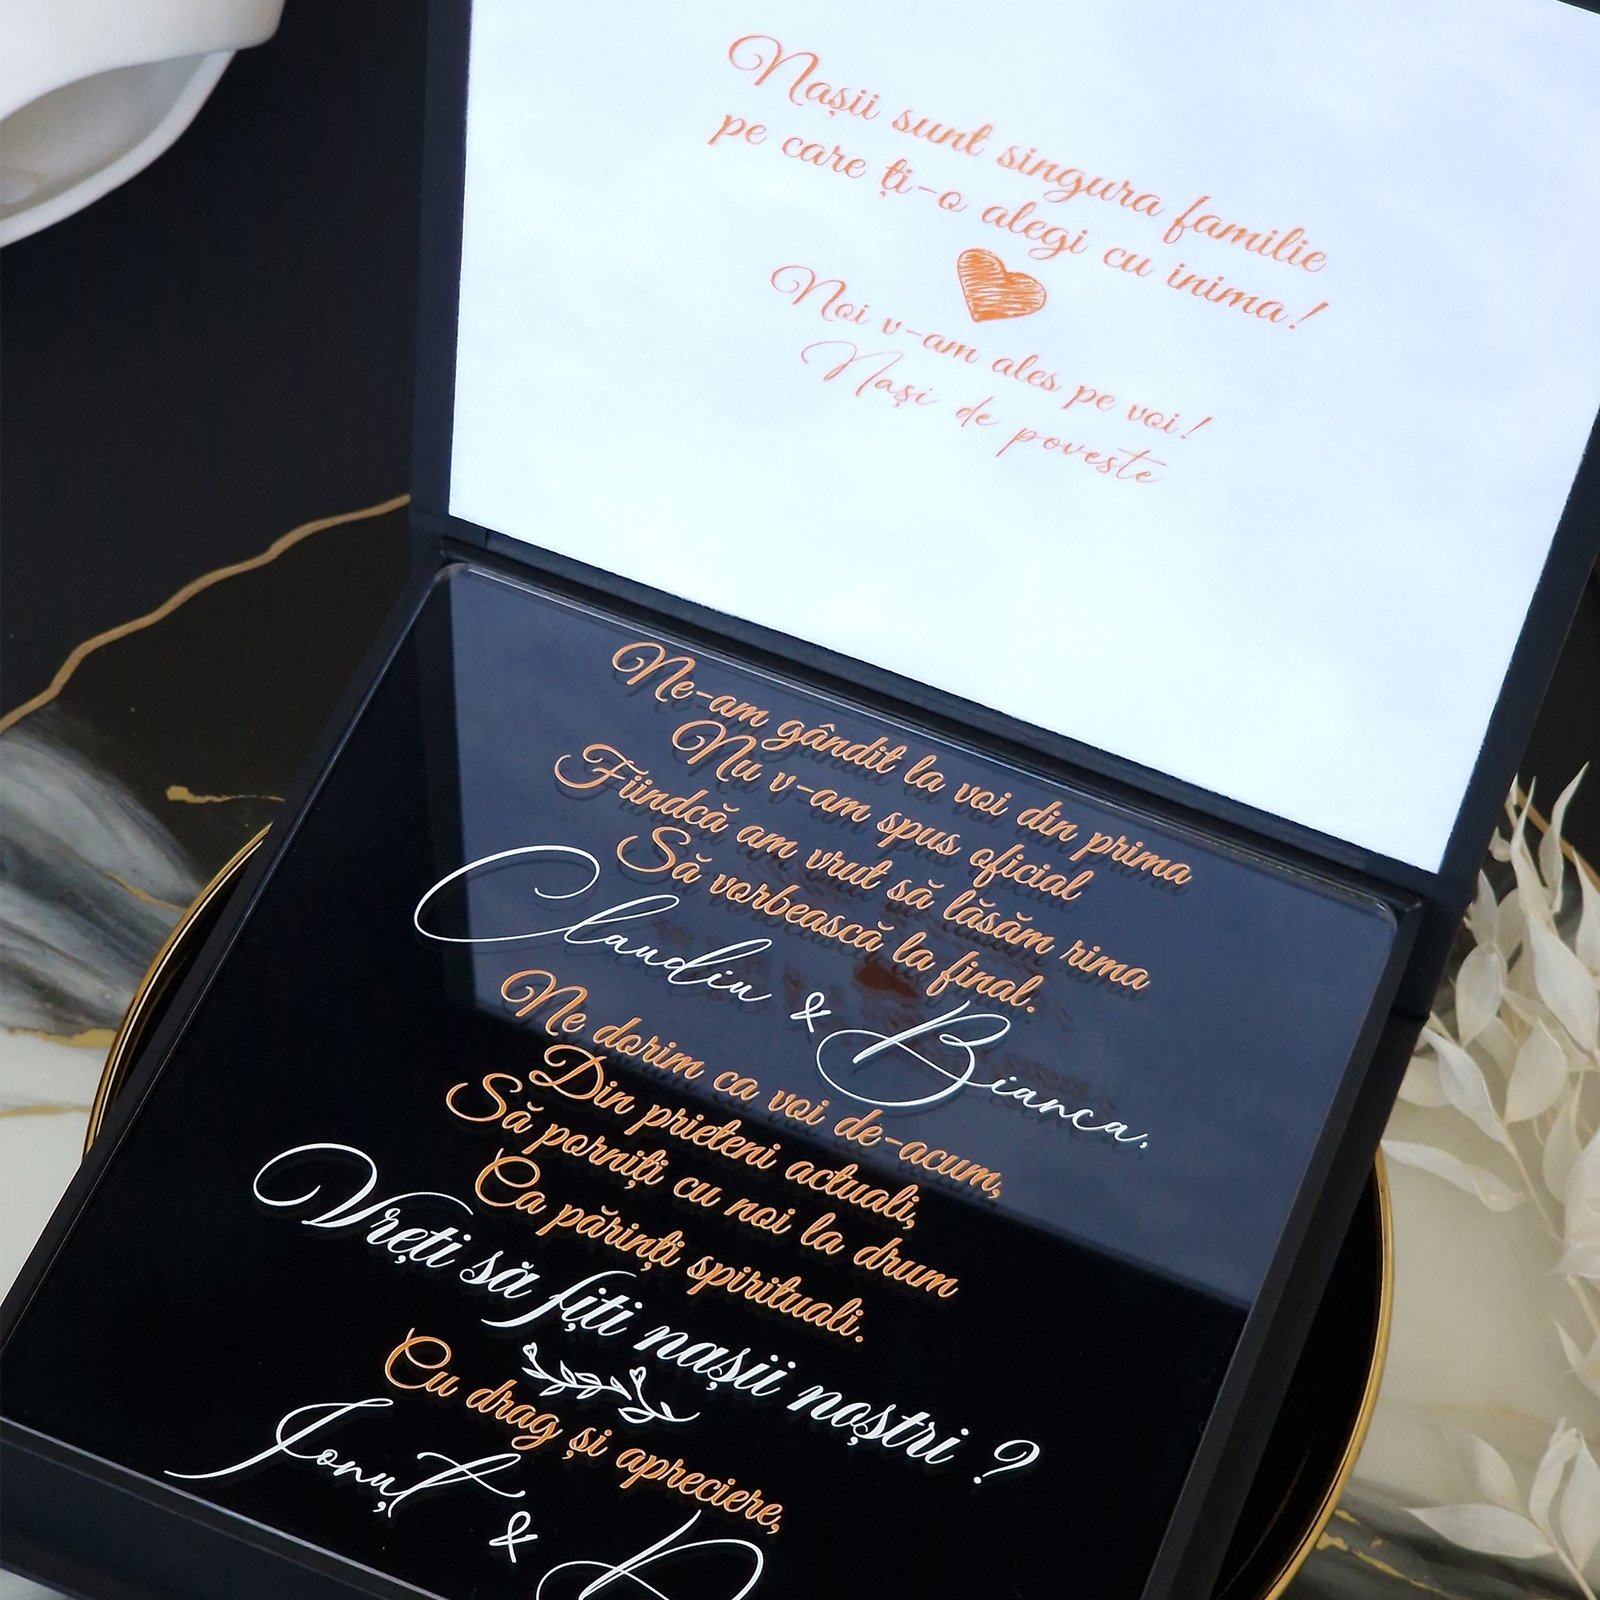 Nașii sunt singura familie
pe care ți-o alegi cu inima!
Noi v-am ales pe voi!
Nași de poveste
Ne-am gândit la voi din prima
Nu v-am spus oficial
Fiindcă am vrut să lăsăm rima
Să vorbească la final.
Claudiu & Bianca,
Ne dorim ca voi de-acum,
Din prieteni actuali,
Să porniți cu noi la drum
Ca părinți spirituali.
Vreți să fiți nașii noștri ?
Cu drag și apreciere,
Ionuț &